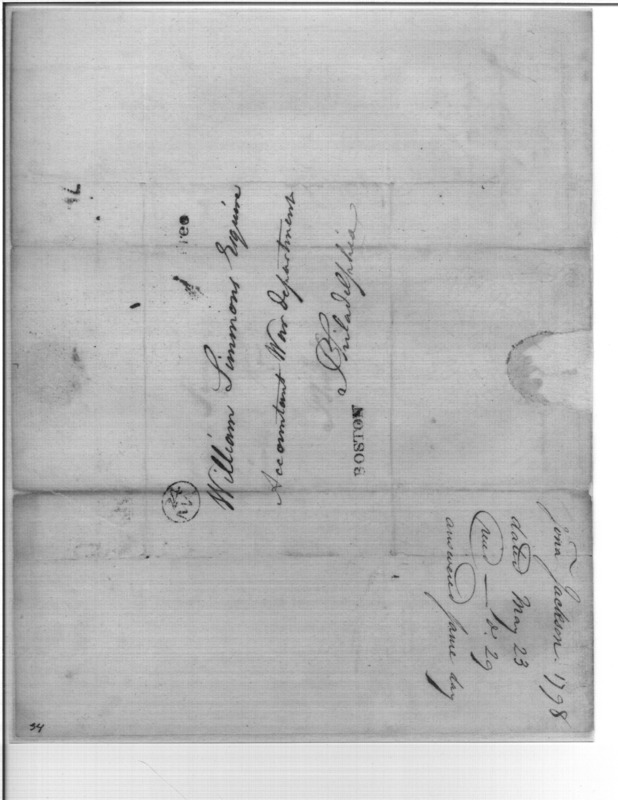 Free
William Simmons Esquire
Accountant War department
Philadelphia
BOSTON
Jona Jackson. 1798
dated May 23
Recd — do. 29
answered same day
34